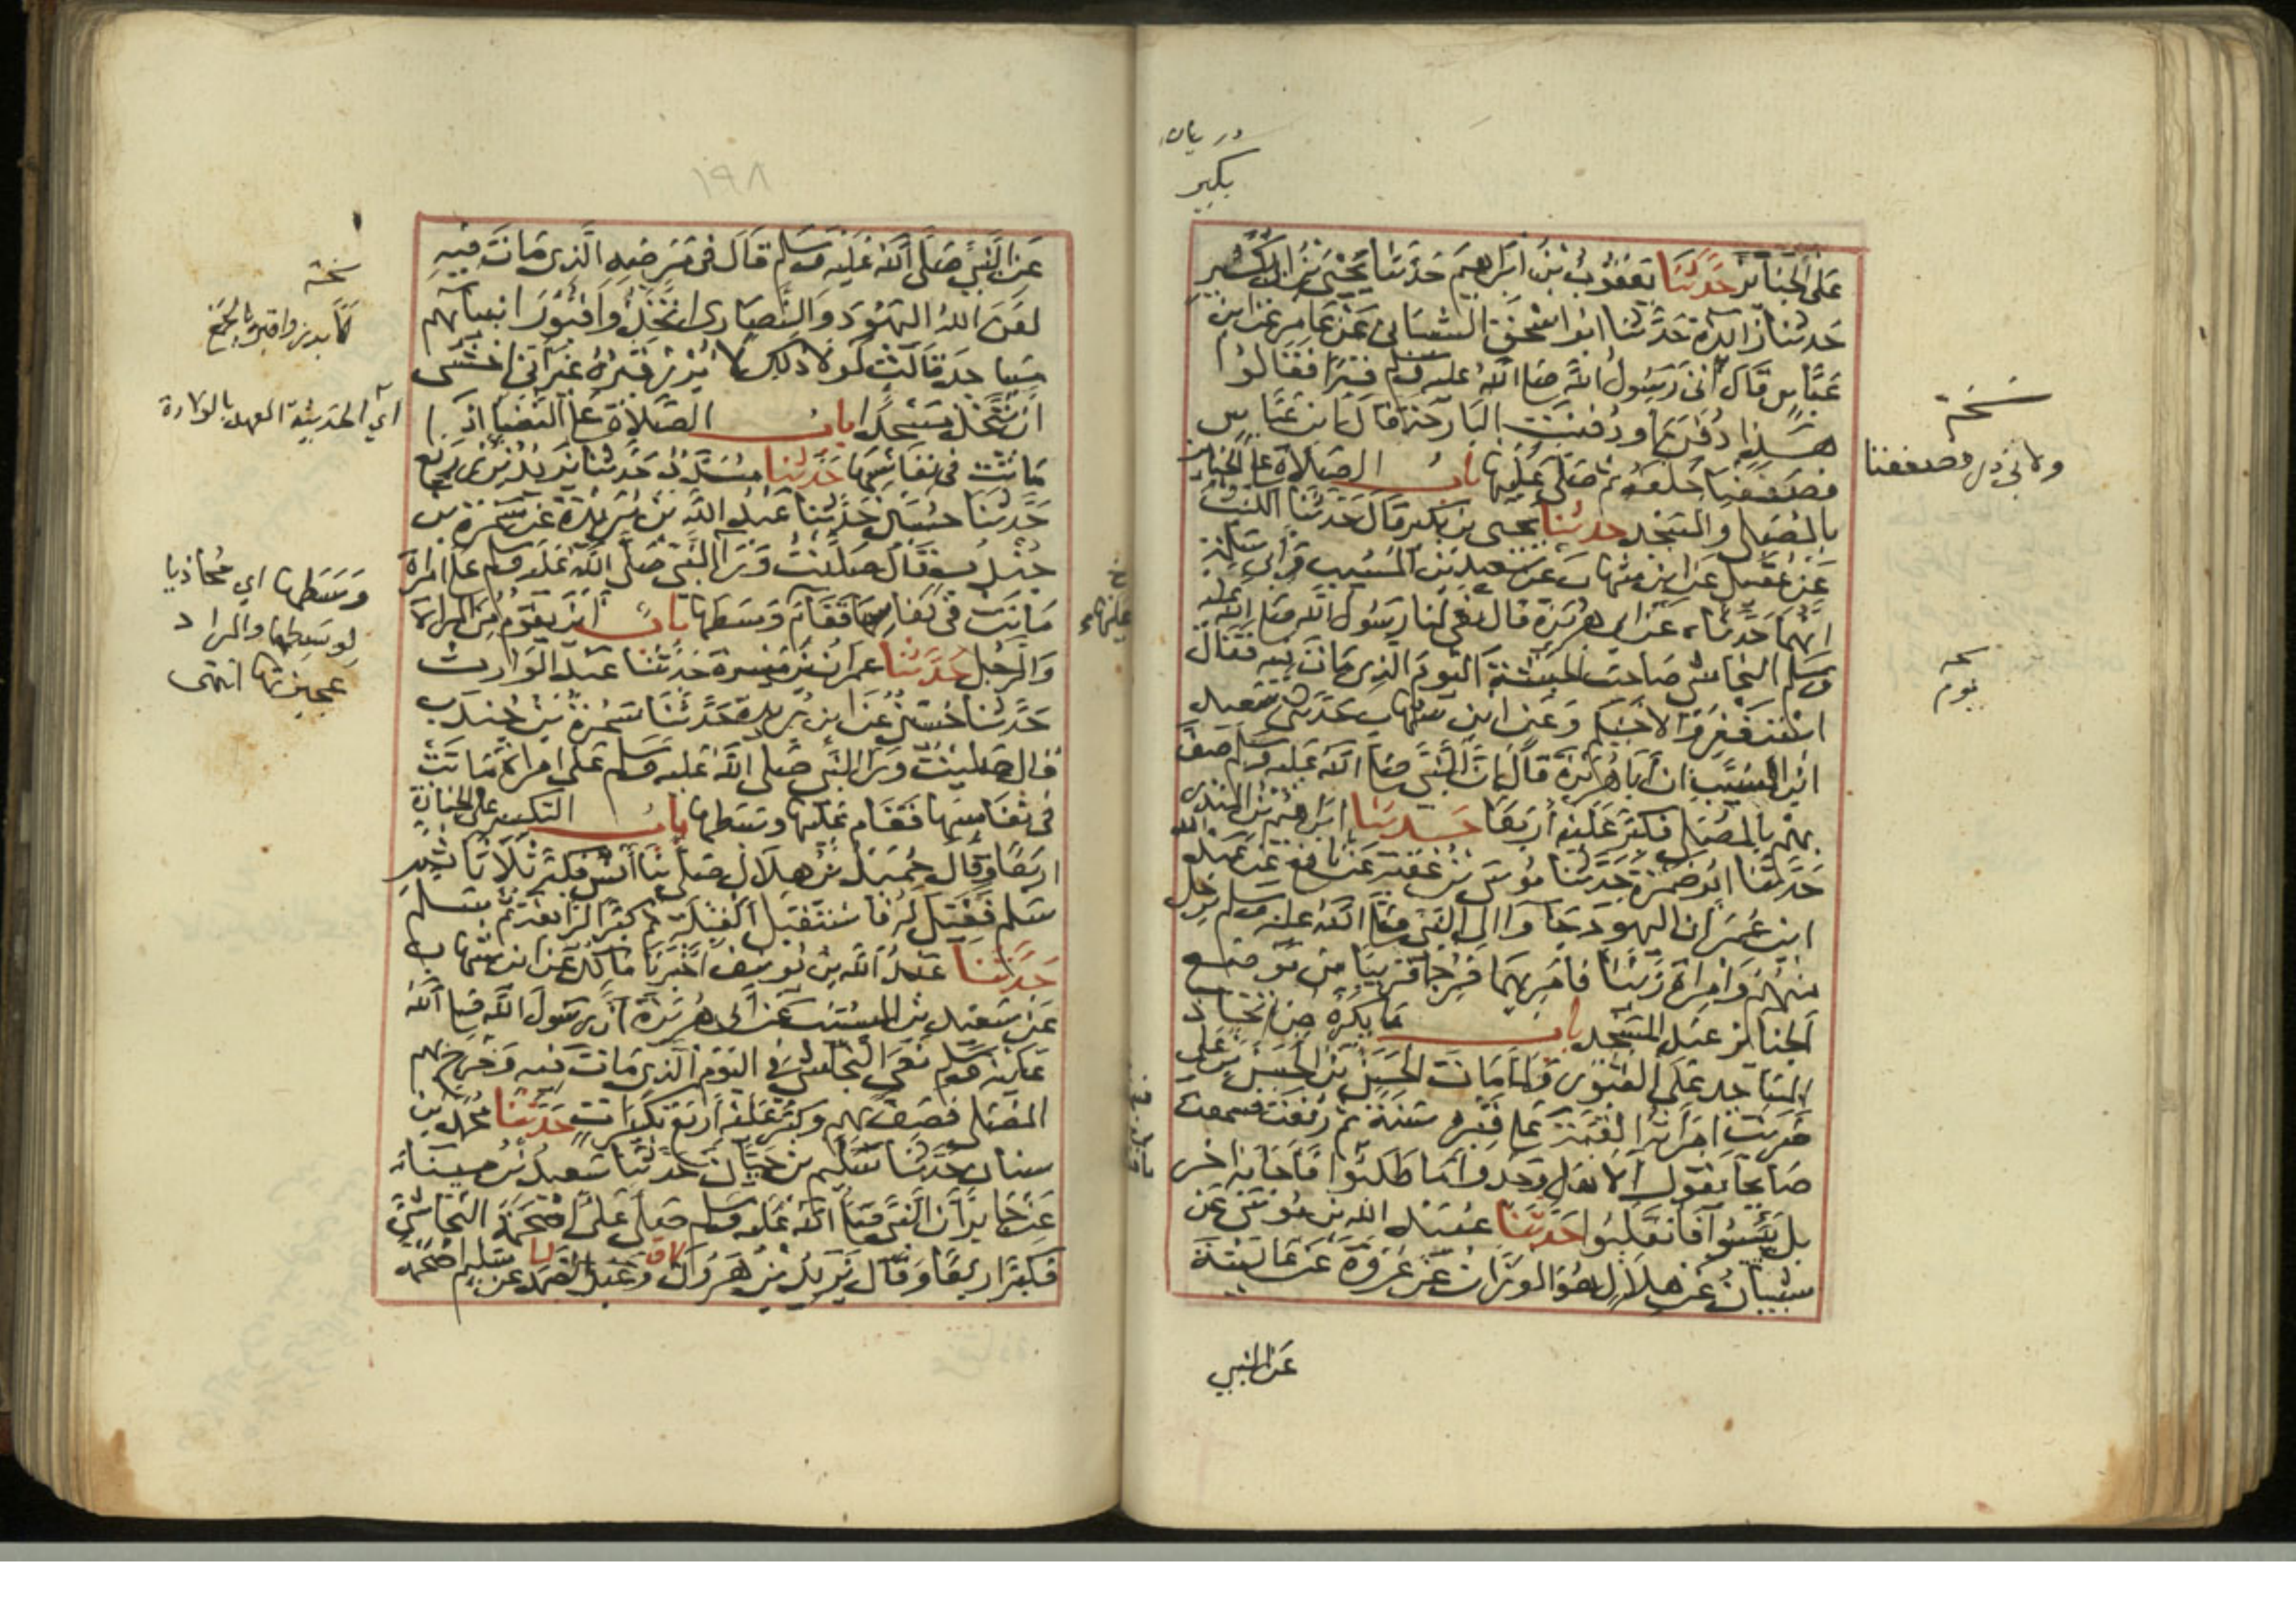 على الجنائز حدثنا يعقوب بن ابراهيم حدثنا يحيى بن ابي بكير
حدثنا زائدة حدثنا ابو اسحق الشيباني عن عامر عن ابن
عباس قال اتى رسول الله صلى الله عليه وسلم قبرا فقالوا
هذا دفن او دفنت البارحة قال ابن عباس
فصففنا خلفه ثم صلى عليها باب الصلاة على الجنائز
بالمصلى والمسجد حدثنا يحيى بن بكير قال حدثنا الليث
عن عقيل عن ابن شهاب عن سعيد بن المسيب وابي سلمة
انهما حدثاه عن ابي هريرة قال نعى لنا رسول الله صلى الله عليه
وسلم النجاشي صاحب الحبشة اليوم الذي مات فيه فقال
استغفروا لاخيكم وعن ابن شهاب حدثني سعيد
ابن المسيب ان ابا هريرة قال ان النبي صلى الله عليه وسلم صف
بهم بالمصلى فكبر عليه اربعا حدثنا ابراهيم بن المنذر
حدثنا ابو ضمرة حدثنا موسى بن عقبة عن نافع عن عبد الله
ابن عمر ان اليهود جاوا الى النبي صلى الله عليه وسلم برجل
منهم وامراة زنيا فامر بهما فرجما قريبا من موضع
الجنائز عند المسجد باب ما يكره من اتخاذ
المساجد على القبور ولما مات الحسن بن الحسن بن علي
ضربت امراته القبة على قبره سنة ثم رفعت فسمعت
صائحا يقول الا هل وجدوا ما طلبوا فاجابه اخر
بل يئسوا فانقلبوا حدثنا عبيد الله بن موسى عن
شيبان عن هلال هو الوزان عن عروة عن عائشة
عن النبي
بكير
نسخة
ولابي ذر فصففنا
نسخة
يوم
١٩٨
عن النبي صلى الله عليه وسلم قال في مرضه الذي مات فيه
لعن الله اليهود والنصارى اتخذوا قبور انبيائهم
مساجد قالت لولا ذلك لا برز قبره غير اني اخشى
ان يتخذ مسجدا باب الصلاة على النفساء اذا
ماتت في نفاسها حدثنا مسدد حدثنا يزيد بن زريع
حدثنا حسين حدثنا عبد الله بن بريدة عن سمرة بن
جندب قال صليت ورا النبي صلى الله عليه وسلم على امراة
ماتت في نفاسها فقام وسطها باب اين يقوم من المراة
والرجل حدثنا عمران بن ميسرة حدثنا عبد الوارث
حدثنا حسين عن ابن بريدة حدثنا سمرة بن جندب
قال صليت ورا النبي صلى الله عليه وسلم على امراة ماتت
في نفاسها فقام عليها وسطها باب التكبير على الجنازة
اربعا وقال حميد بن هلال صلى بنا انس فكبر ثلاثا ثم
سلم فقيل له فاستقبل القبلة ثم كبر الرابعة ثم سلم
حدثنا عبد الله بن يوسف اخبرنا مالك عن ابن شهاب
عن سعيد بن المسيب عن ابي هريرة ان رسول الله صلى الله
عليه وسلم نعى النجاشي في اليوم الذي مات فيه وخرج بهم
المصلى فصف بهم وكبر عليه اربع تكبيرات حدثنا محمد بن
سنان حدثنا سليم بن حيان حدثنا سعيد بن ميناء
عن جابر ان النبي صلى الله عليه وسلم صلى على اصحمة النجاشي
فكبر اربعا وقال يزيد بن هرون وعبد الصمد عن سليم اصحمة
نسخة
اي الحديثة العهد بالولادة
وسطها اي محاذيا
لوسطها والمراد
عجيزتها انتهى